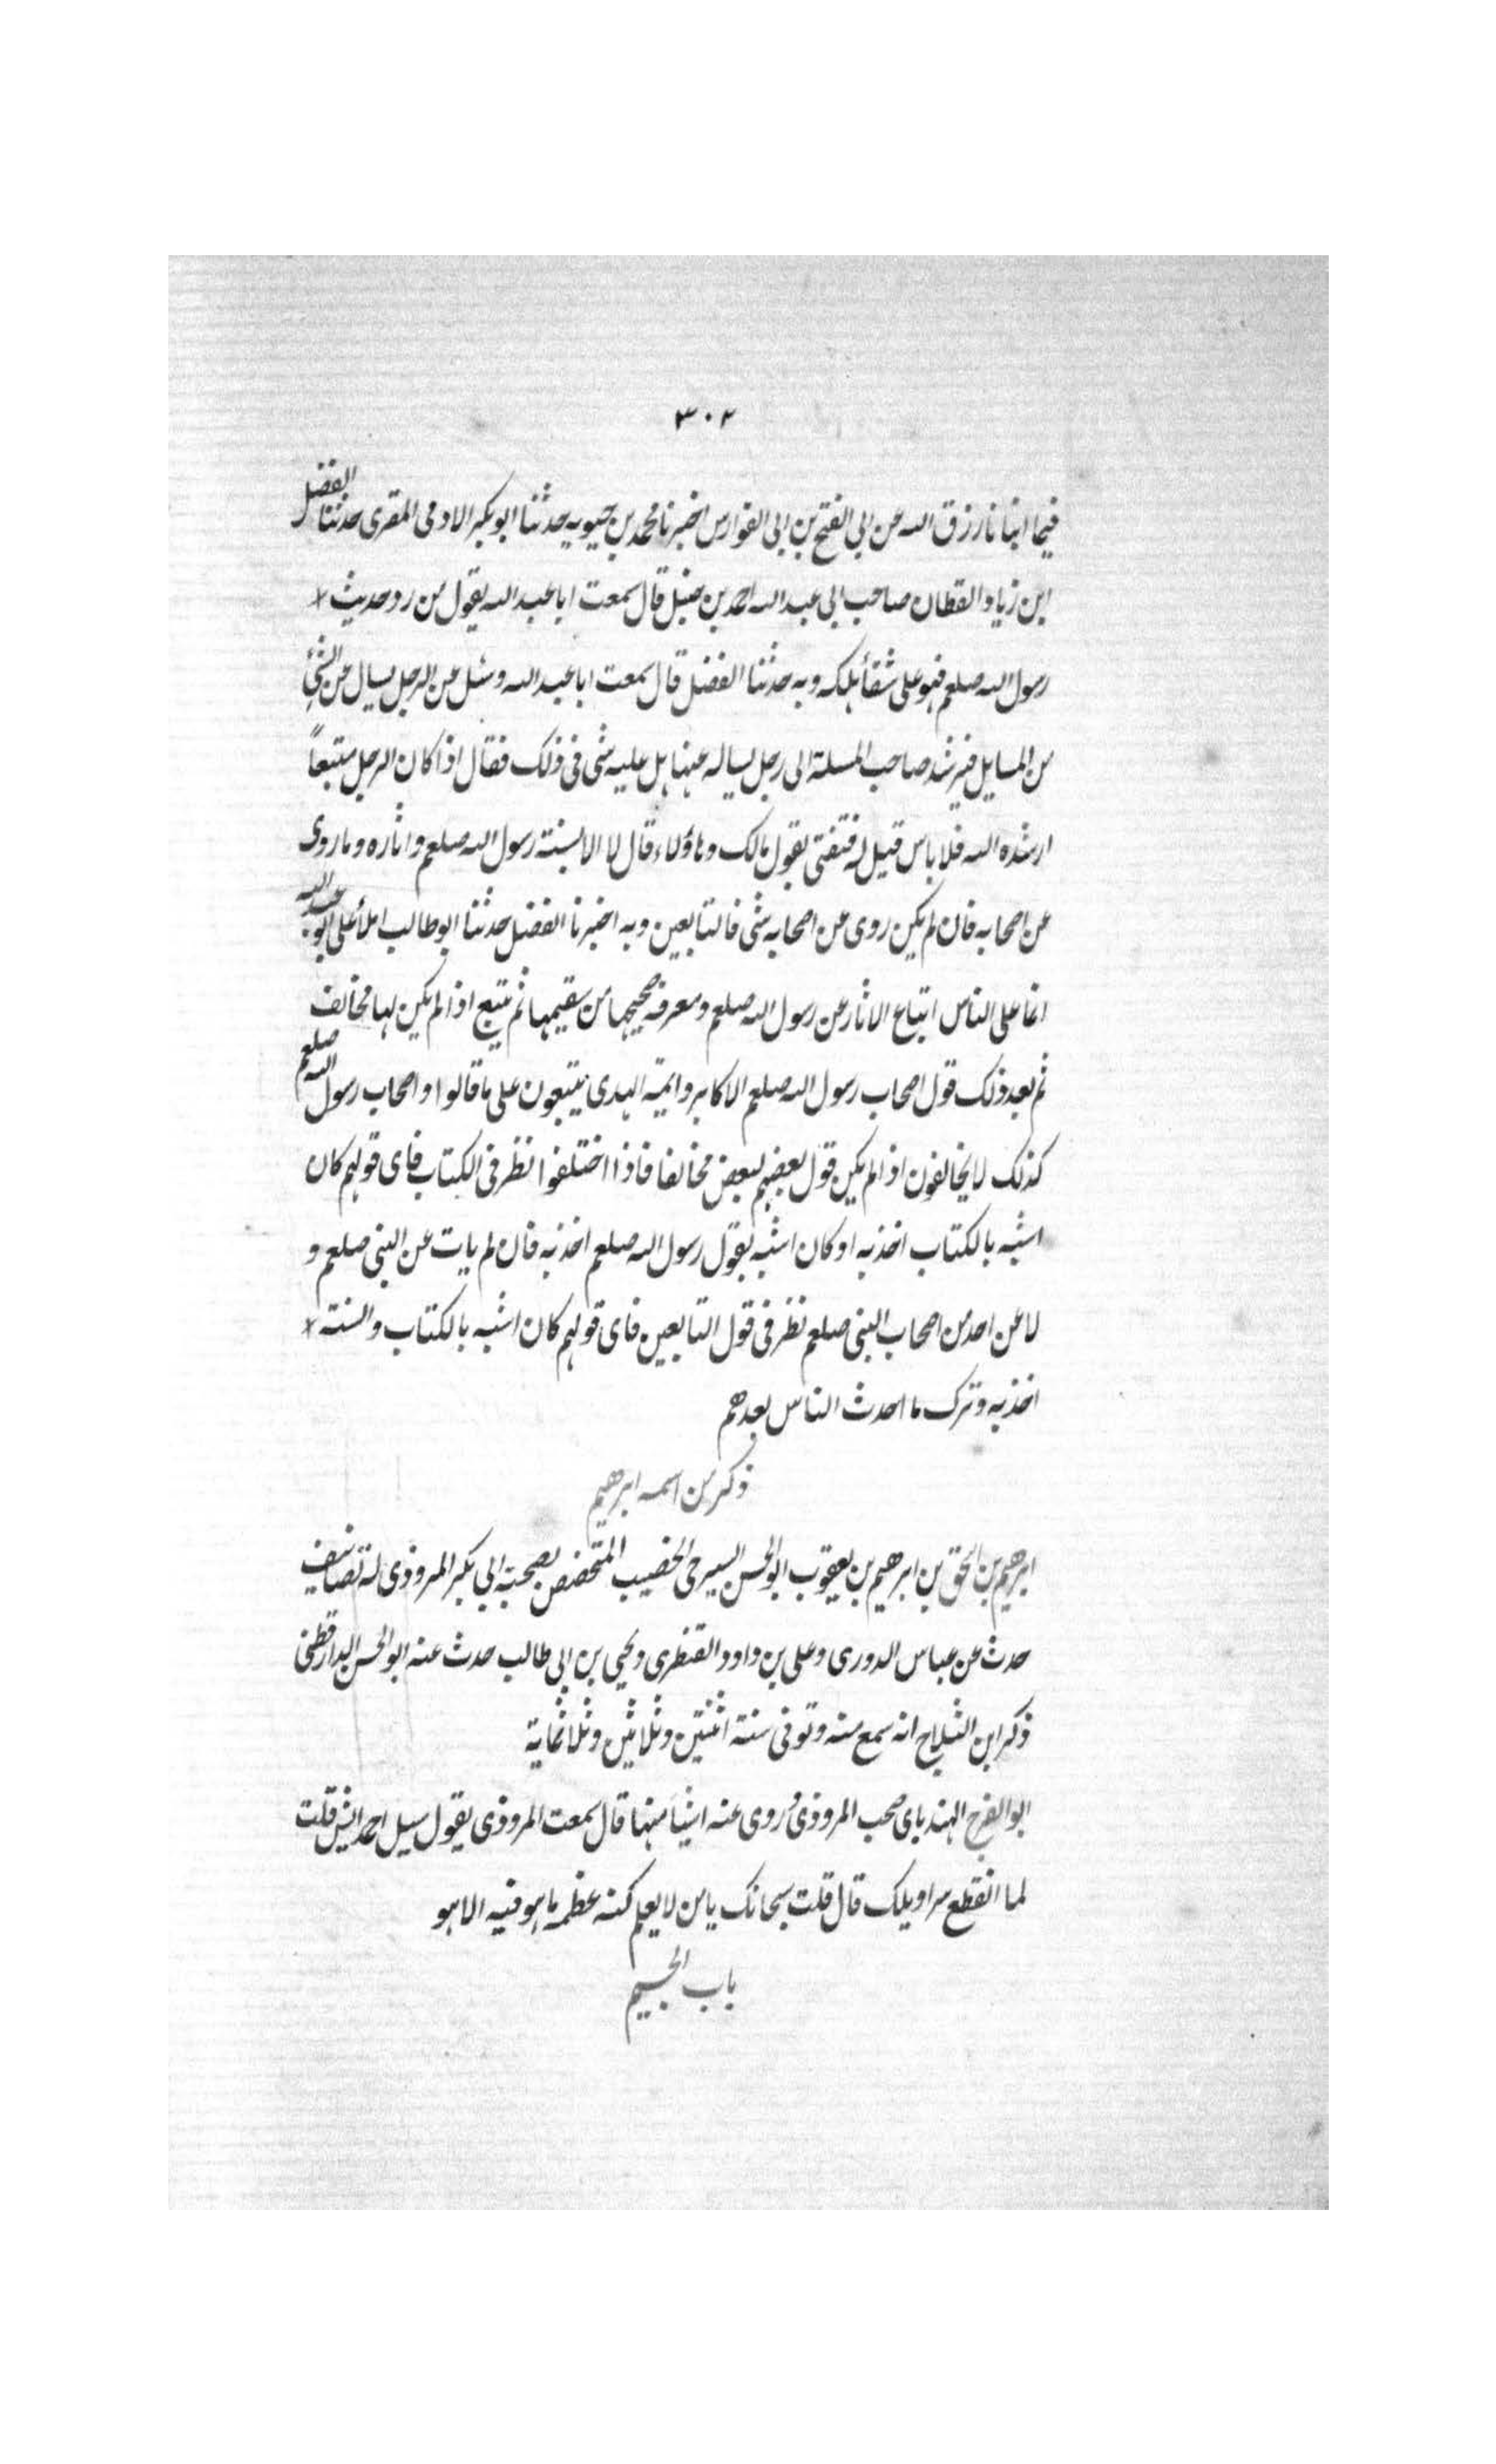 ٣٠٢
فيما انبانا رزق الله عن ابى الفتح بن ابى الفوارس اخبرنا محمد بن حيويه حدثنا ابو بكر الادمى المقرى حدثنا الفضل
ابن زياد القطان صاحب ابى عبد الله احمد بن حنبل قال سمعت ابا عبد الله يقول من رد حديث
رسول الله صلعم فهو على شفأ هلكه وبه حدثنا الفضل قال سمعت ابا عبد الله وسئل عن الرجل يسال عن الشئ
من المسايل فيرشد صاحب المسلة الى رجل يساله عنها هل عليه شى فى ذلك فقال اذا كان الرجل متبعاً
ارشده اليه فلا باس قيل له فتفتى بقول مالك وهاؤلاء قال لا الا بسنته رسول الله صلعم واثاره وما روى
عن اصحابه فان لم يكن روى عن اصحابه شى فالتابعين وبه اخبرنا الفضل حدثنا ابو طالب املأ على ابو عبد الله
انما على الناس اتباع الاثار عن رسول الله صلعم ومعرفة صحيحها من سقيمها ثم يتبع اذا لم يكن لها مخالف
ثم بعد ذلك قول اصحاب رسول الله صلعم الاكابر وايمة الهدى يتبعون على ما قالوا واصحاب رسول الله صلعم
كذلك لا يخالفون اذا لم يكن قول بعضهم لبعض مخالفا فاذا اختلفوا نظر فى الكتاب فاى قولهم كان
اشبه بالكتاب اخذ به او كان اشبه بقول رسول الله صلعم اخذ به فان لم يات عن النبى صلعم و
لا عن احد من اصحاب النبى صلعم نظر فى قول التابعين فاى قولهم كان اشبه بالكتاب والسنة
اخذ به وترك ما احدث الناس بعدهم
ذكر من اسمه ابرهيم
ابرهيم بن اسحق بن ابرهيم بن يعقوب ابو الحسن السيرجى الخضيب المتخصص بصحبة ابى بكر المروذى له تصانيف
حدث عن عباس الدورى وعلى بن داود القنطرى ويحيى بن ابى طالب حدث عنه ابو الحسن الدارقطنى
ذكر ابن الثلاج انه سمع منه وتوفى سنة اثنتين وثلاثين وثلاثماية
ابو الفرج الهندباى صحب المروذى وروى عنه اشيأ منها قال سمعت المروذى يقول سيل احمد ايش قلت
لما انقطع سراويلك قال قلت سبحانك يا من لا يعلم كنه عظمه ما هو فيه الا هو
باب الجيم